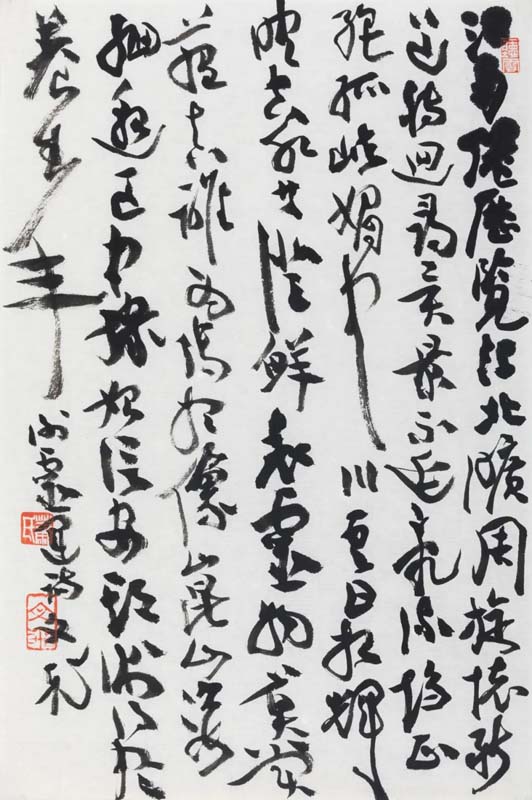 江南倦歷覽江北曠周旋懷新
道轉迥尋異景不延亂流趨正
絕孤嶼媚中川雲日相輝
映空水共澄鮮表靈物莫賞
蘊真誰為傳想像崑山姿
緬邈區中緣始信安期術得盡
養生年
謝靈運詩文礼